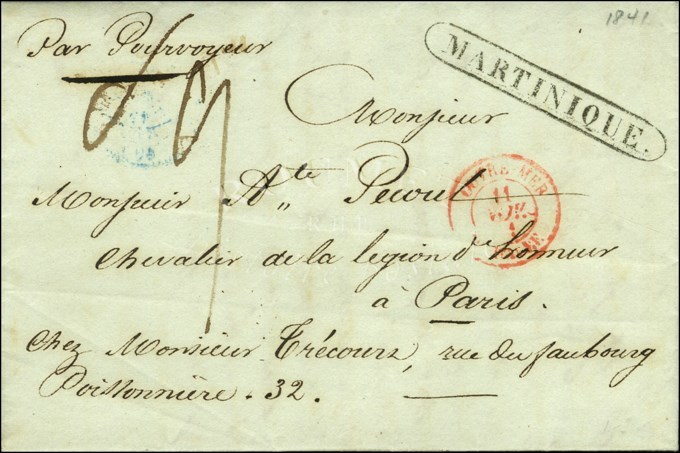 1841
Par Pourvoyeur
MARTINIQUE.
Monsieur
Monsieur Ate Pecoul
OUTRE MER
11
Chevalier de la legion d'honneur
à Paris.
Chez Monsieur Trécourt, rue du faubourg
Poissonnière. 32.